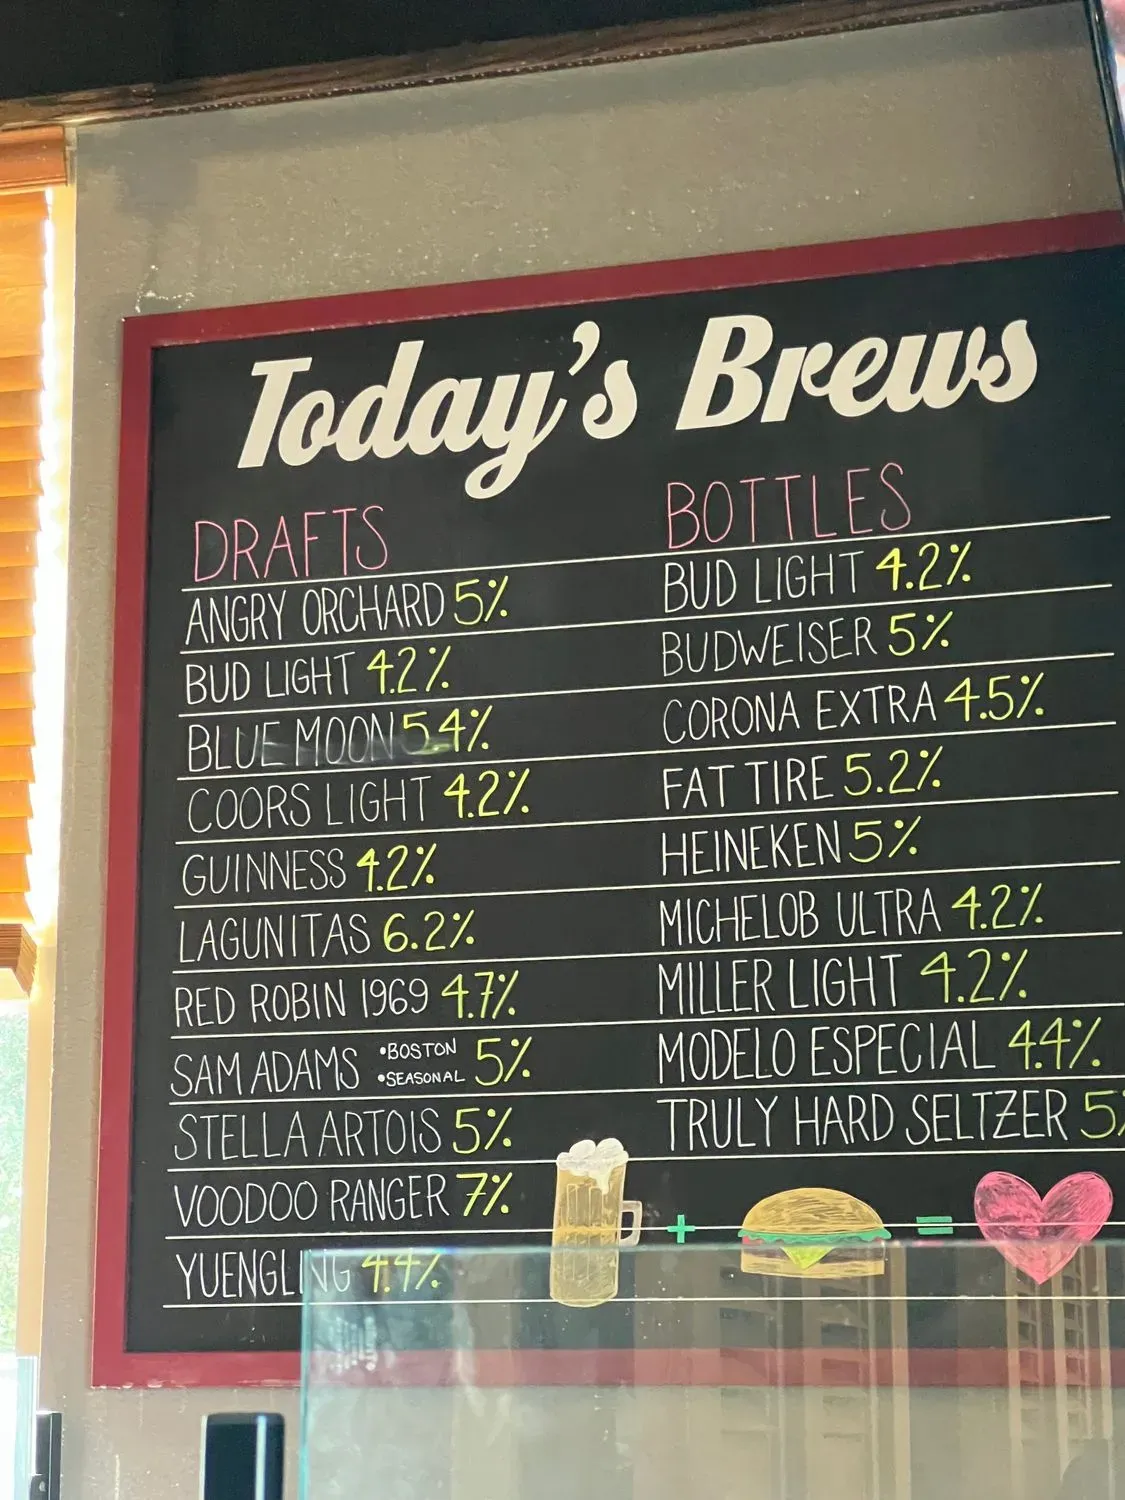 Today's Brews
DRAFTS
ANGRY ORCHARD 5%
BUD LIGHT 4.2%
BLUE MOON 5.4%
COORS LIGHT 4.2%
GUINNESS 4.2%
LAGUNITAS 6.2%
RED ROBIN 1969 4.7%
SAM ADAMS •BOSTON •SEASONAL 5%
STELLA ARTOIS 5%
VOODOO RANGER 7%
YUENGLING 4.4%
BOTTLES
BUD LIGHT 4.2%
BUDWEISER 5%
CORONA EXTRA 4.5%
FAT TIRE 5.2%
HEINEKEN 5%
MICHELOB ULTRA 4.2%
MILLER LIGHT 4.2%
MODELO ESPECIAL 4.4%
TRULY HARD SELTZER 5%
+ =